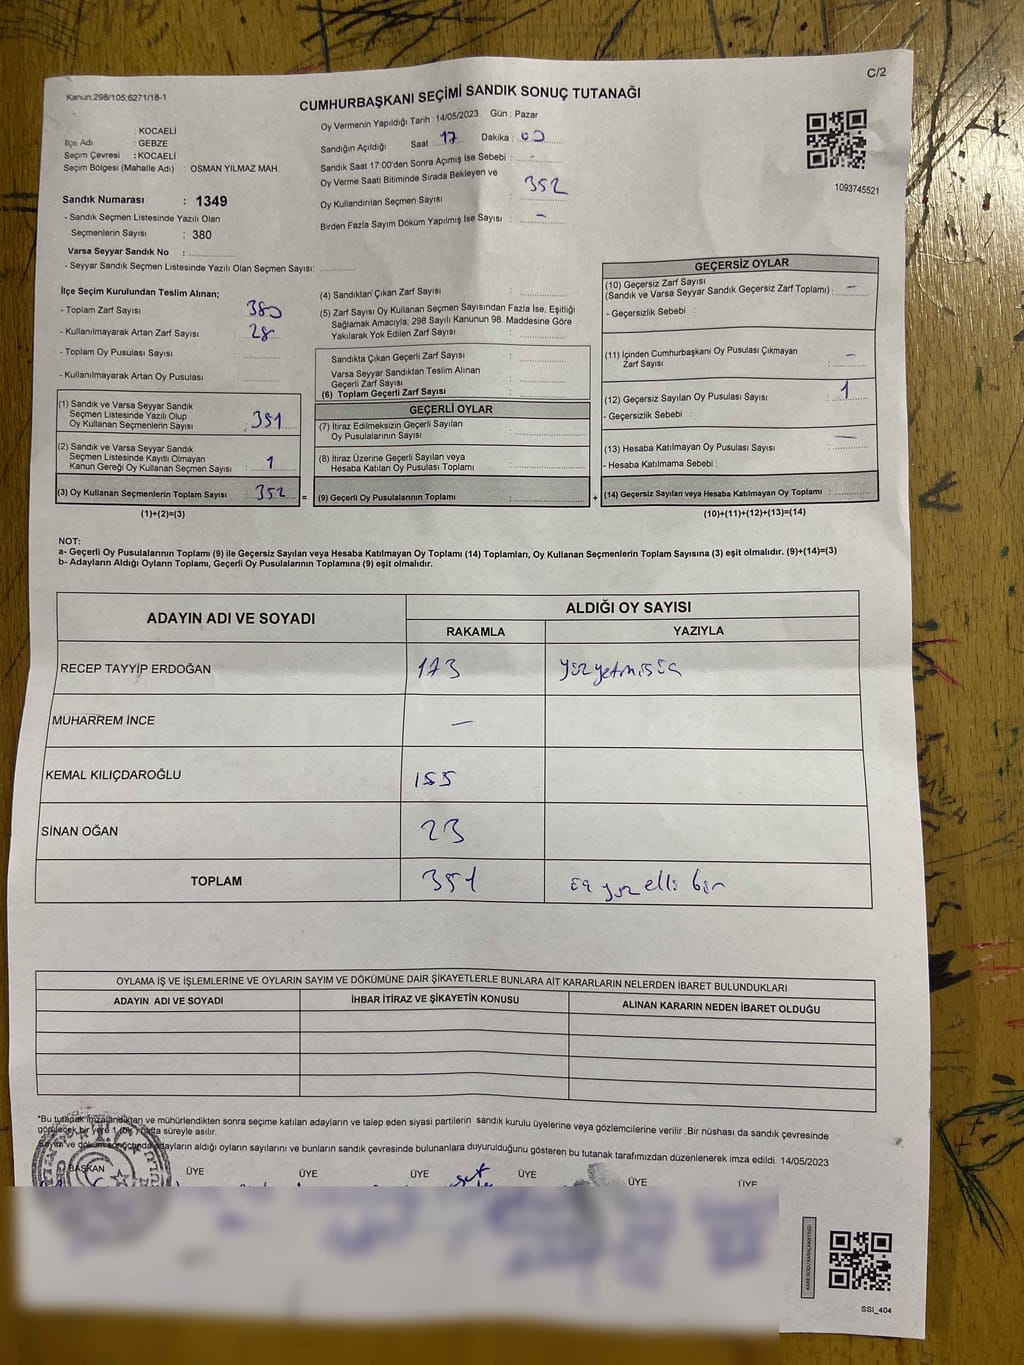 C/2
Kanun:298/105;6271/18-1
CUMHURBAŞKANI SEÇİMİ SANDIK SONUÇ TUTANAĞI
: KOCAELİ
İlçe Adı : GEBZE
Seçim Çevresi : KOCAELİ
Seçim Bölgesi (Mahalle Adı) : OSMAN YILMAZ MAH.
Sandık Numarası : 1349
- Sandık Seçmen Listesinde Yazılı Olan
Seçmenlerin Sayısı : 380
Varsa Seyyar Sandık No :
- Seyyar Sandık Seçmen Listesinde Yazılı Olan Seçmen Sayısı:
Oy Vermenin Yapıldığı Tarih : 14/05/2023 Gün : Pazar
Sandığın Açıldığı Saat : 17 Dakika : 00
Sandık Saat 17:00'den Sonra Açımış İse Sebebi : -
Oy Verme Saati Bitiminde Sırada Bekleyen ve
Oy Kullandırılan Seçmen Sayısı : 352
Birden Fazla Sayım Döküm Yapılmış İse Sayısı : -
1093745521
İlçe Seçim Kurulundan Teslim Alınan;
- Toplam Zarf Sayısı : 380
- Kullanılmayarak Artan Zarf Sayısı : 28
- Toplam Oy Pusulası Sayısı :
- Kullanılmayarak Artan Oy Pusulası :
(1) Sandık ve Varsa Seyyar Sandık
Seçmen Listesinde Yazılı Olup
Oy Kullanan Seçmenlerin Sayısı : 351
(2) Sandık ve Varsa Seyyar Sandık
Seçmen Listesinde Kayıtlı Olmayan
Kanun Gereği Oy Kullanan Seçmen Sayısı : 1
(3) Oy Kullanan Seçmenlerin Toplam Sayısı : 352
(1)+(2)=(3)
=
(4) Sandıktan Çıkan Zarf Sayısı :
(5) Zarf Sayısı Oy Kullanan Seçmen Sayısından Fazla İse, Eşitliği
Sağlamak Amacıyla, 298 Sayılı Kanunun 98. Maddesine Göre
Yakılarak Yok Edilen Zarf Sayısı :
Sandıkta Çıkan Geçerli Zarf Sayısı :
Varsa Seyyar Sandıktan Teslim Alınan
Geçerli Zarf Sayısı :
(6) Toplam Geçerli Zarf Sayısı :
GEÇERLİ OYLAR
(7) İtiraz Edilmeksizin Geçerli Sayılan
Oy Pusulalarının Sayısı :
(8) İtiraz Üzerine Geçerli Sayılan veya
Hesaba Katılan Oy Pusulası Toplamı :
(9) Geçerli Oy Pusulalarının Toplamı :
+
GEÇERSİZ OYLAR
(10) Geçersiz Zarf Sayısı
(Sandık ve Varsa Seyyar Sandık Geçersiz Zarf Toplamı) : -
- Geçersizlik Sebebi :
(11) İçinden Cumhurbaşkanı Oy Pusulası Çıkmayan
Zarf Sayısı : -
(12) Geçersiz Sayılan Oy Pusulası Sayısı : 1
- Geçersizlik Sebebi :
(13) Hesaba Katılmayan Oy Pusulası Sayısı : -
- Hesaba Katılmama Sebebi :
(14) Geçersiz Sayılan veya Hesaba Katılmayan Oy Toplamı :
(10)+(11)+(12)+(13)=(14)
NOT:
a- Geçerli Oy Pusulalarının Toplamı (9) ile Geçersiz Sayılan veya Hesaba Katılmayan Oy Toplamı (14) Toplamları, Oy Kullanan Seçmenlerin Toplam Sayısına (3) eşit olmalıdır. (9)+(14)=(3)
b- Adayların Aldığı Oyların Toplamı, Geçerli Oy Pusulalarının Toplamına (9) eşit olmalıdır.
ADAYIN ADI VE SOYADI ALDIĞI OY SAYISI
RAKAMLA YAZIYLA
RECEP TAYYİP ERDOĞAN 173 yüzyetmişüç
MUHARREM İNCE -
KEMAL KILIÇDAROĞLU 155
SİNAN OĞAN 23
TOPLAM 351 üç yüz elli bir
OYLAMA İŞ VE İŞLEMLERİNE VE OYLARIN SAYIM VE DÖKÜMÜNE DAİR ŞİKAYETLERLE BUNLARA AİT KARARLARIN NELERDEN İBARET BULUNDUKLARI
ADAYIN ADI VE SOYADI İHBAR İTİRAZ VE ŞİKAYETİN KONUSU ALINAN KARARIN NEDEN İBARET OLDUĞU
*Bu tutanak imzalandıktan ve mühürlendikten sonra seçime katılan adayların ve talep eden siyasi partilerin sandık kurulu üyelerine veya gözlemcilerine verilir .Bir nüshası da sandık çevresinde
görülecek bir yere 1 (bir) hafta süreyle asılır.
Sayım ve döküm sonucunda adayların aldığı oyların sayılarını ve bunların sandık çevresinde bulunanlara duyurulduğunu gösteren bu tutanak tarafımızdan düzenlenerek imza edildi. 14/05/2023
BAŞKAN ÜYE ÜYE ÜYE ÜYE ÜYE ÜYE
SSI_404